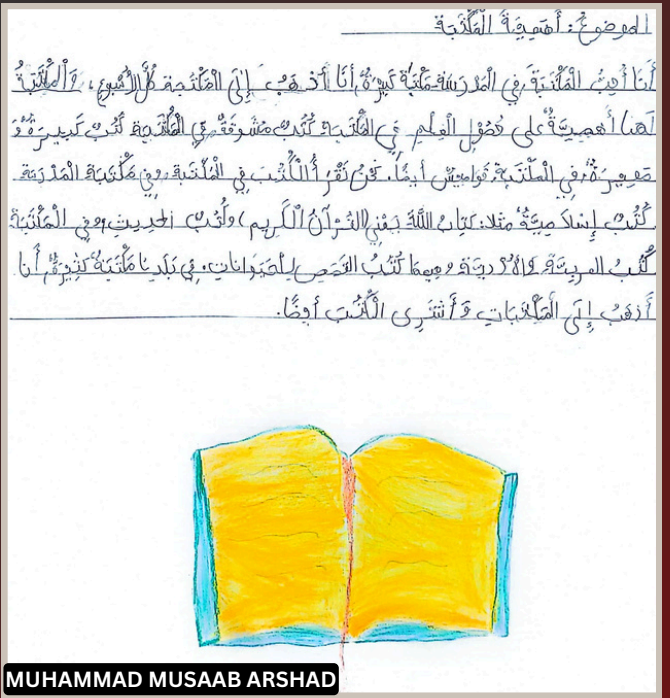 الموضوع: أَهَمِيَّةُ الْمَكْتَبَة
أَنَا أُحِبُّ الْمَكْتَبَةَ، فِي الْمَدْرَسَةِ مَكْتَبَةٌ كَبِيْرَةٌ، أَنَا أَذْهَبُ إِلَى الْمَكْتَبَة كُلَّ الأُسْبُوعِ، وَالْمَكْتَبَةُ
لَهَا أَهَمِيَّةٌ عَلَى حُصُوْلِ الْعِلْمِ فِي الْمَكْتَبَةِ كُتُبٌ مَشُوقَةٌ، فِي الْمَكْتَبَةِ كُتُبٌ كَبِيرَةٌ وَ
صَغِيرَةٌ، فِي الْمَكْتَبَةِ قَوَامِيْسُ أَيْضًا. نَحْنُ نَقْرَأُ الْكُتُبَ فِي الْمَكْتَبَةِ، وفِي مَكْتَبَةِ الْمَدْرَسَة
كُتُبٌ إِسْلَامِيَّةٌ مثلا: كِتَابُ اللَّهِ يَعْنِي (الْقُرْآنُ الْكَرِيم) وَكُتُبُ الحَدِيثِ، وَفِي الْمَكْتَبَةِ
كُتُبُ العربِيَّةِ وَالأُرْدِيَّة وفِيهَا كُتُبُ القَصَصِ لِلْحَيَوَانَاتِ. فِي بَلَدِنَا مَكْتَبَةٌ كَثِيْرَةٌ، أَنَا
أَذْهَبُ إِلَى الْمَكْتَبَاتِ وَأَشْتَرِى الْكُتُبَ أَيْضًا.
MUHAMMAD MUSAAB ARSHAD